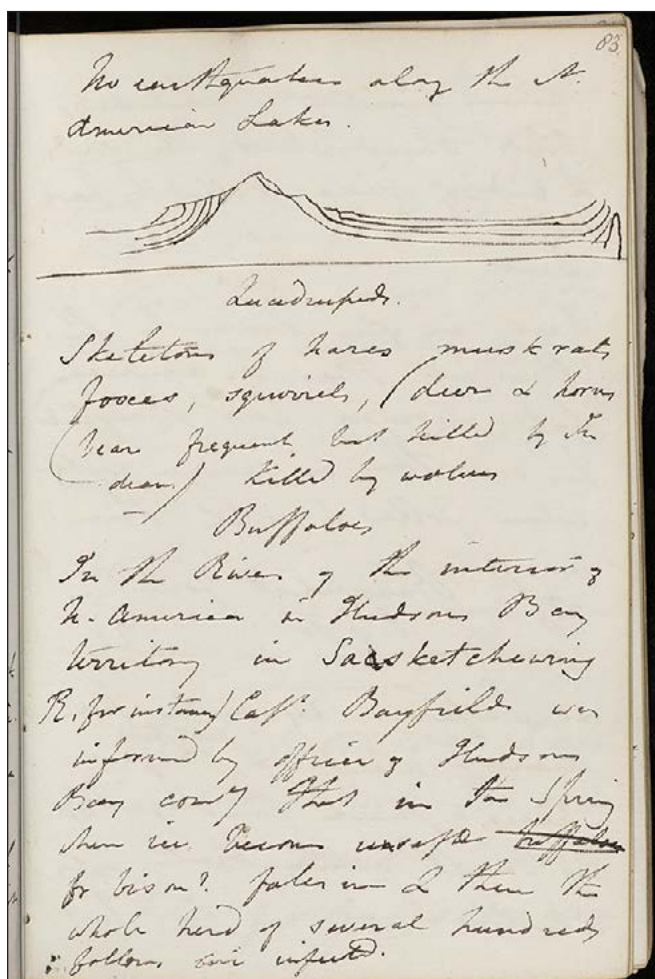 83.
No earthquakes along the N.
American Lakes.
Quadrupeds.
Skeletons of hares musk rats
foxes, squirrels, (deer & horns
(bear frequent but killed by In
dians) killed by wolves
Buffaloes
In the Rivers of the interior of
N. America in Hudsons Bay
territory in Sasketchewing
R. for instance) Capt. Bayfield was
informed by officer of Hudsons
Bay comy that in the Spring
when ice becomes unsafe buffaloe
or bison? falls in & then the
whole herd of several hundreds
follows